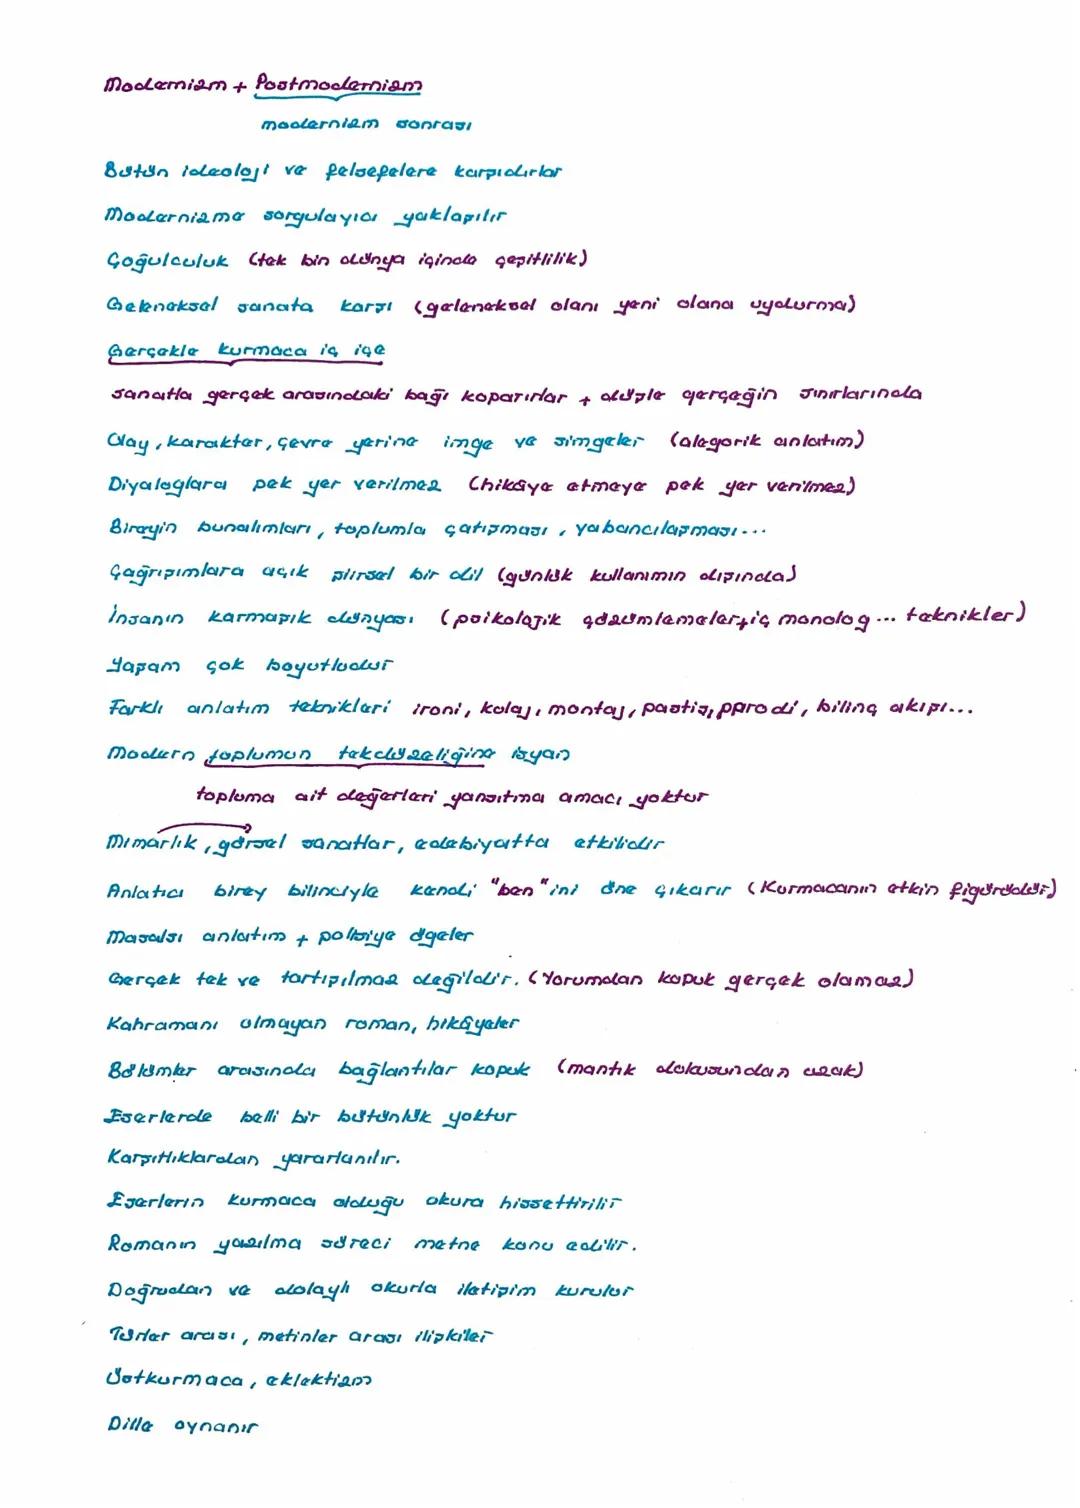 Modernizm + Postmodernizm
modernizm sonrası
Bütün ideoloji ve felsefelere karşıdırlar
Modernizme sorgulayıcı yaklaşılır
Çoğulculuk (tek bin dünya içinde çeşitlilik)
Geleneksel sanata karşı (geleneksel olanı yeni olana uydurma)
Gerçekle kurmaca iç içe
sanatla gerçek arasındaki bağı koparırlar + düşle gerçeğin sınırlarında
Olay, karakter, çevre yerine imge ve simgeler (alegorik anlatım)
Diyaloglara pek yer verilmez (hikâye etmeye pek yer verilmez)
Bireyin bunalımları, toplumla çatışması, yabancılaşması...
Çağrışımlara açık şiirsel bir dil (günlük kullanımın dışında)
İnsanın karmaşık dünyası (psikolojik çözümlemeler, iç monolog... teknikler)
Yaşam çok boyutludur
Farklı anlatım teknikleri ironi, kolaj, montaj, pastiş, pparodi, bilinç akışı...
Modern toplumun tekdüzeliğine isyan
topluma ait değerleri yansıtma amacı yoktur
Mimarlık, görsel sanatlar, edebiyatta etkilidir
Anlatıcı birey bilinciyle kendi "ben"ini öne çıkarır (Kurmacanın etkin figürüdür)
Masalsı anlatım + polisiye ögeler
Gerçek tek ve tartışılmaz değildir. (Yorumdan kopuk gerçek olamaz)
Kahramanı olmayan roman, hikâyeler
Bölümler arasında bağlantılar kopuk (mantık dokusundan uzak)
Eserlerde belli bir bütünlük yoktur
Karşıtlıklardan yararlanılır.
Eserlerin kurmaca olduğu okura hissettirilir
Romanın yazılma süreci metne konu edilir.
Doğrudan ve dolaylı okurla iletişim kurulur
Türler arası, metinler arası ilişkiler
Üstkurmaca, eklektizm
Dille oynanır